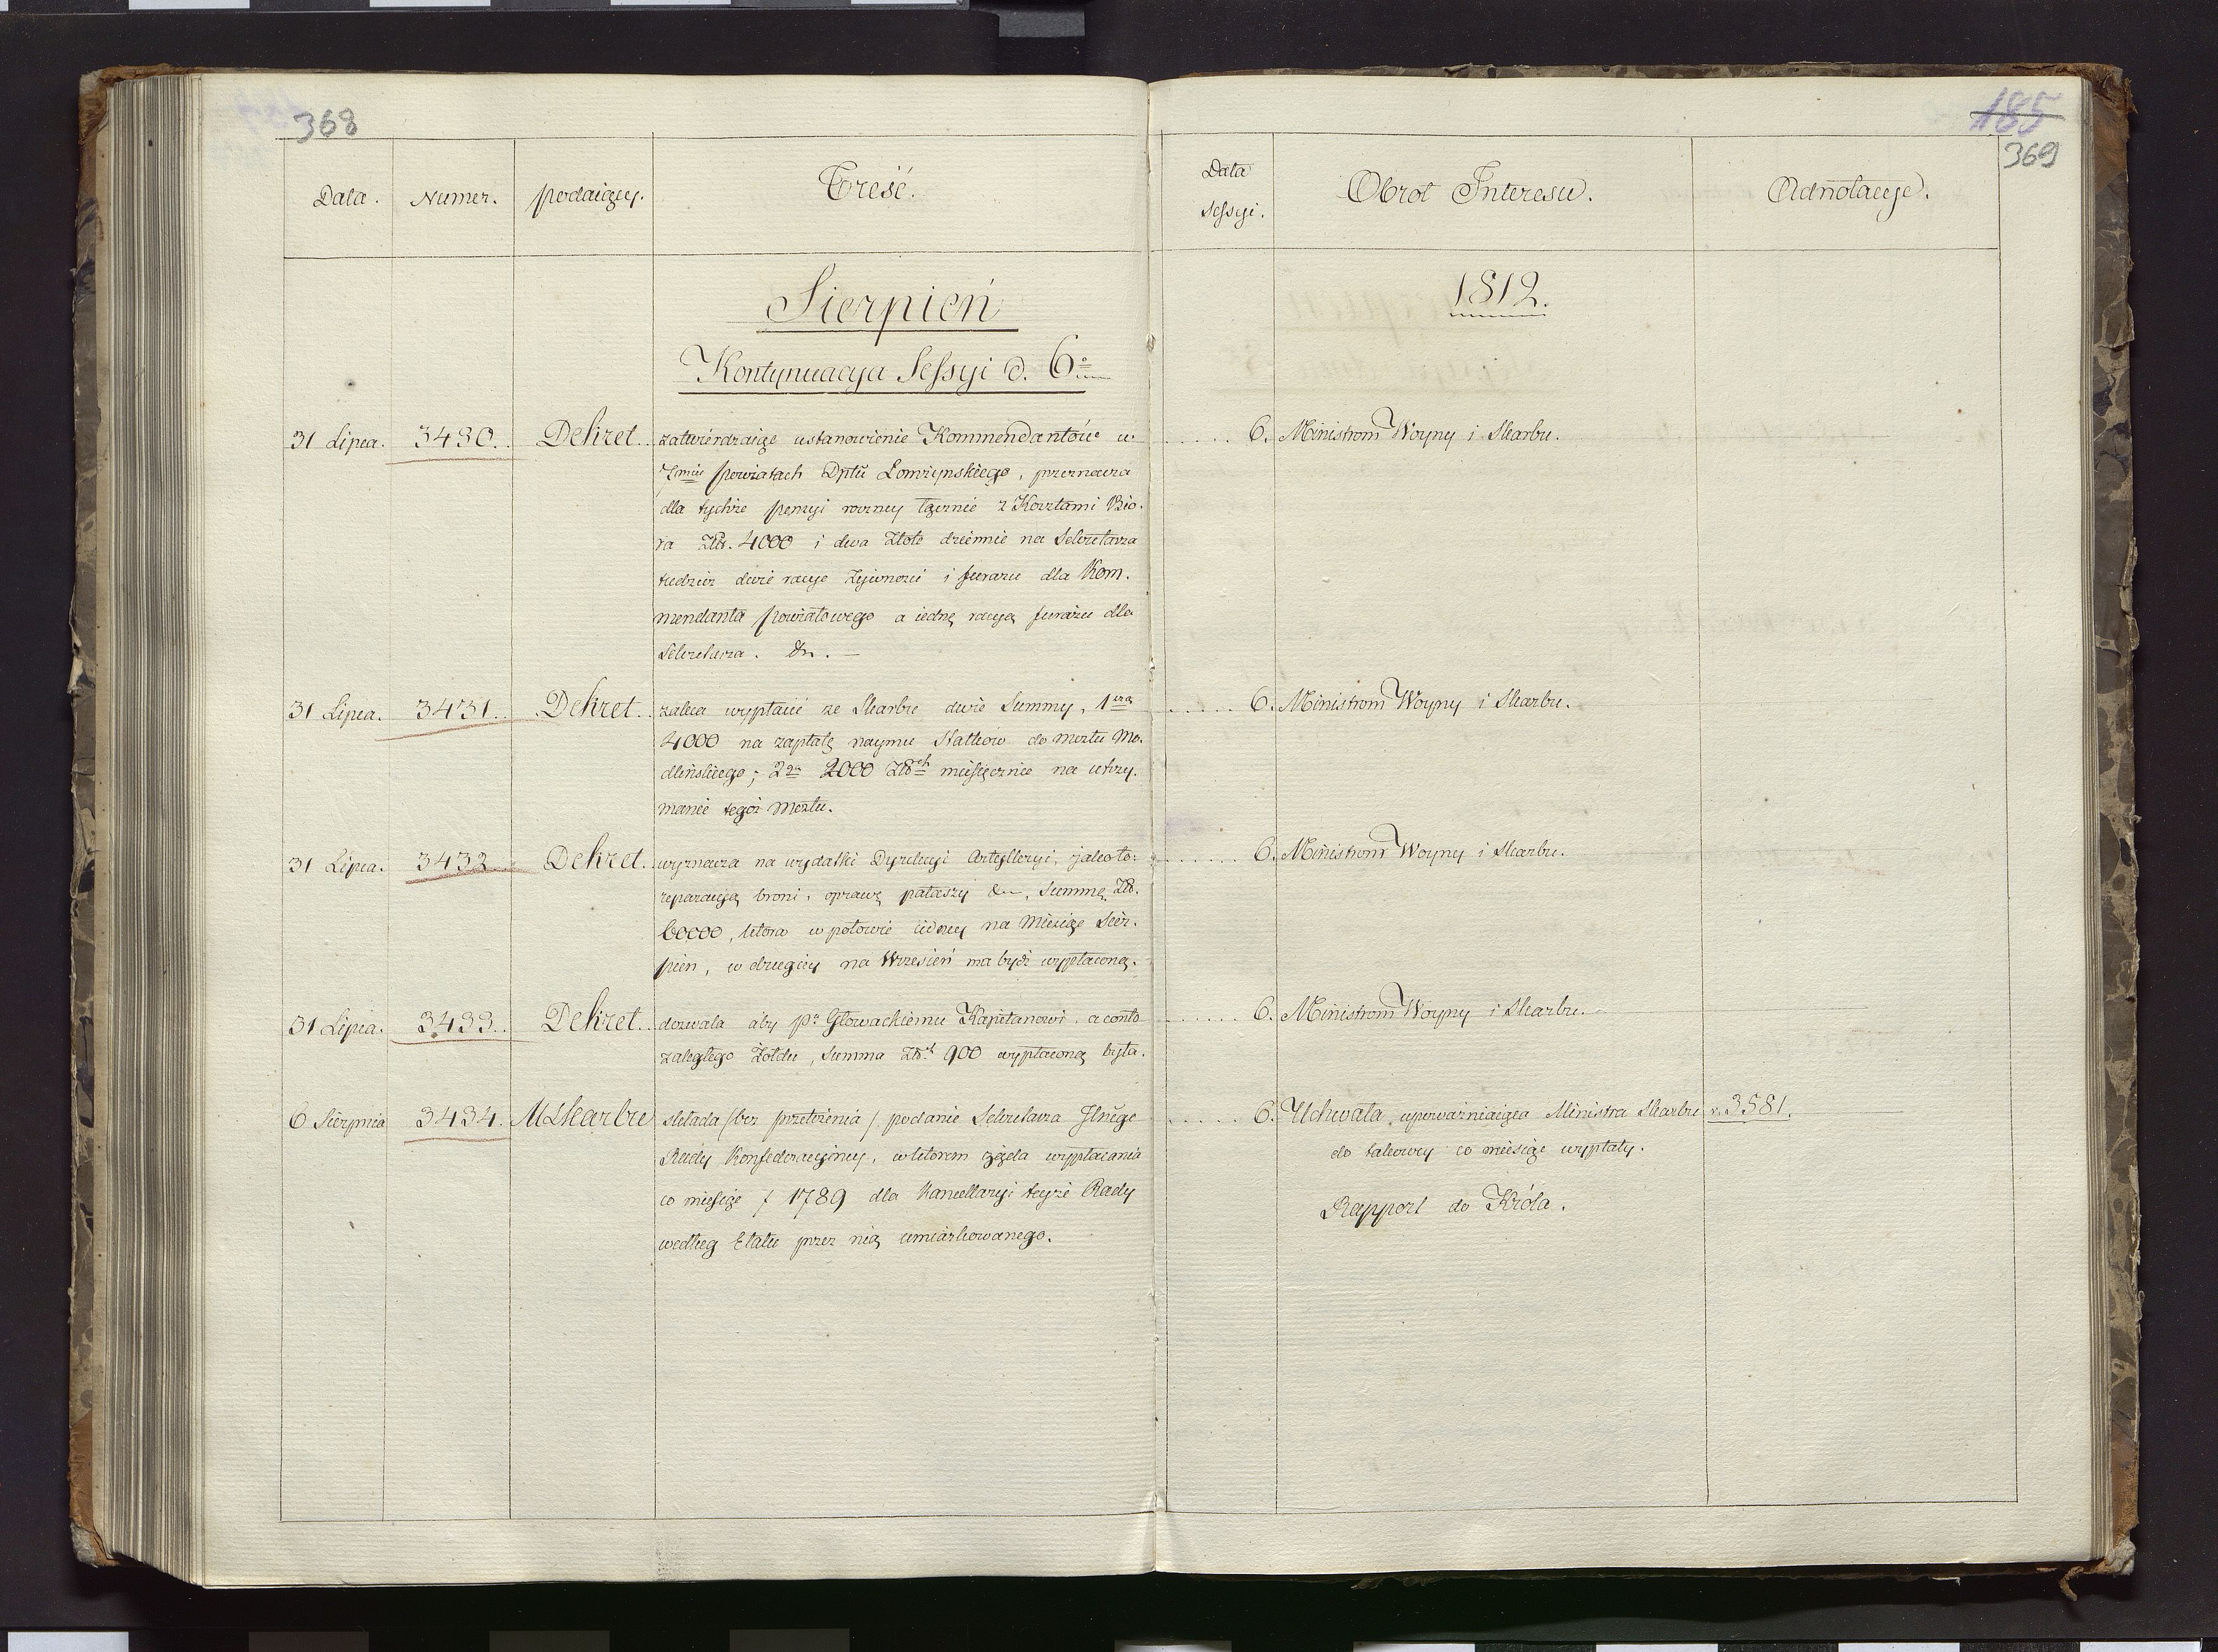 368
185
369
Data. Numer. podaiący. Treść. Data Sessyi. Obrot Interesu. Adnotacye.
Sierpień 1812.
Kontynuacya Sessyi d. 6º
31 Lipca. 3430. Dekret. zatwierdzaiąc ustanowienie Kommendantów w ..... 6. Ministrom Woyny i Skarbu.
7miu powiatach Dptu Łomżynskiego, przeznacza
dla tychże pensyi roczney łącznie z Kosztami Bio-
ra Złt. 4000 i dwa Złote dziennie na Sekretarza
tudzież dwie racye żywności i furażu dla Kom-
mendanta powiatowego a iedną racyą furażu dla
Sekretarza. &c. —
31 Lipca. 3431. Dekret. zaleca wypłacić ze Skarbu dwie Summy, 1sza ..... 6. Ministrom Woyny i Skarbu.
4000 na zapłatę naymu Statków do mostu Mo-
dlińskiego; 2ga 2000 Złtch miesięcznie na utrzy-
manie tegoż mostu.
31 Lipca. 3432. Dekret. wyznacza na wydatki Dyrekcyi Artylleryi, jako to: ..... 6. Ministrom Woyny i Skarbu.
reparacyą broni, oprawę pałaszy &c, Summę Złt.
60000, ktora w połowie iedney na Miesiąc Sier-
pien, w drugiey na Wrzesień ma bydź wypłaconą.
31 Lipca. 3433. Dekret. dozwala aby pu Głowackiemu Kapitanowi, a conto ..... 6. Ministrom Woyny i Skarbu.
zaległego Żołdu, Summa Złt 900 wypłaconą była.
6 Sierpnia 3434. M Skarbu składa /bez przełożenia/ podanie Sekretarza Jlnego ..... 6. Uchwała upoważniaiąca Ministra Skarbu v. 3581.
Rady Konfederacyiney, w ktorem żąda wypłacania do takowey co miesiąc wypłaty.
co miesiąc f 1789 dla Kancellaryi teyże Rady Rapport do Króla.
według Etatu przez nią umiarkowanego.